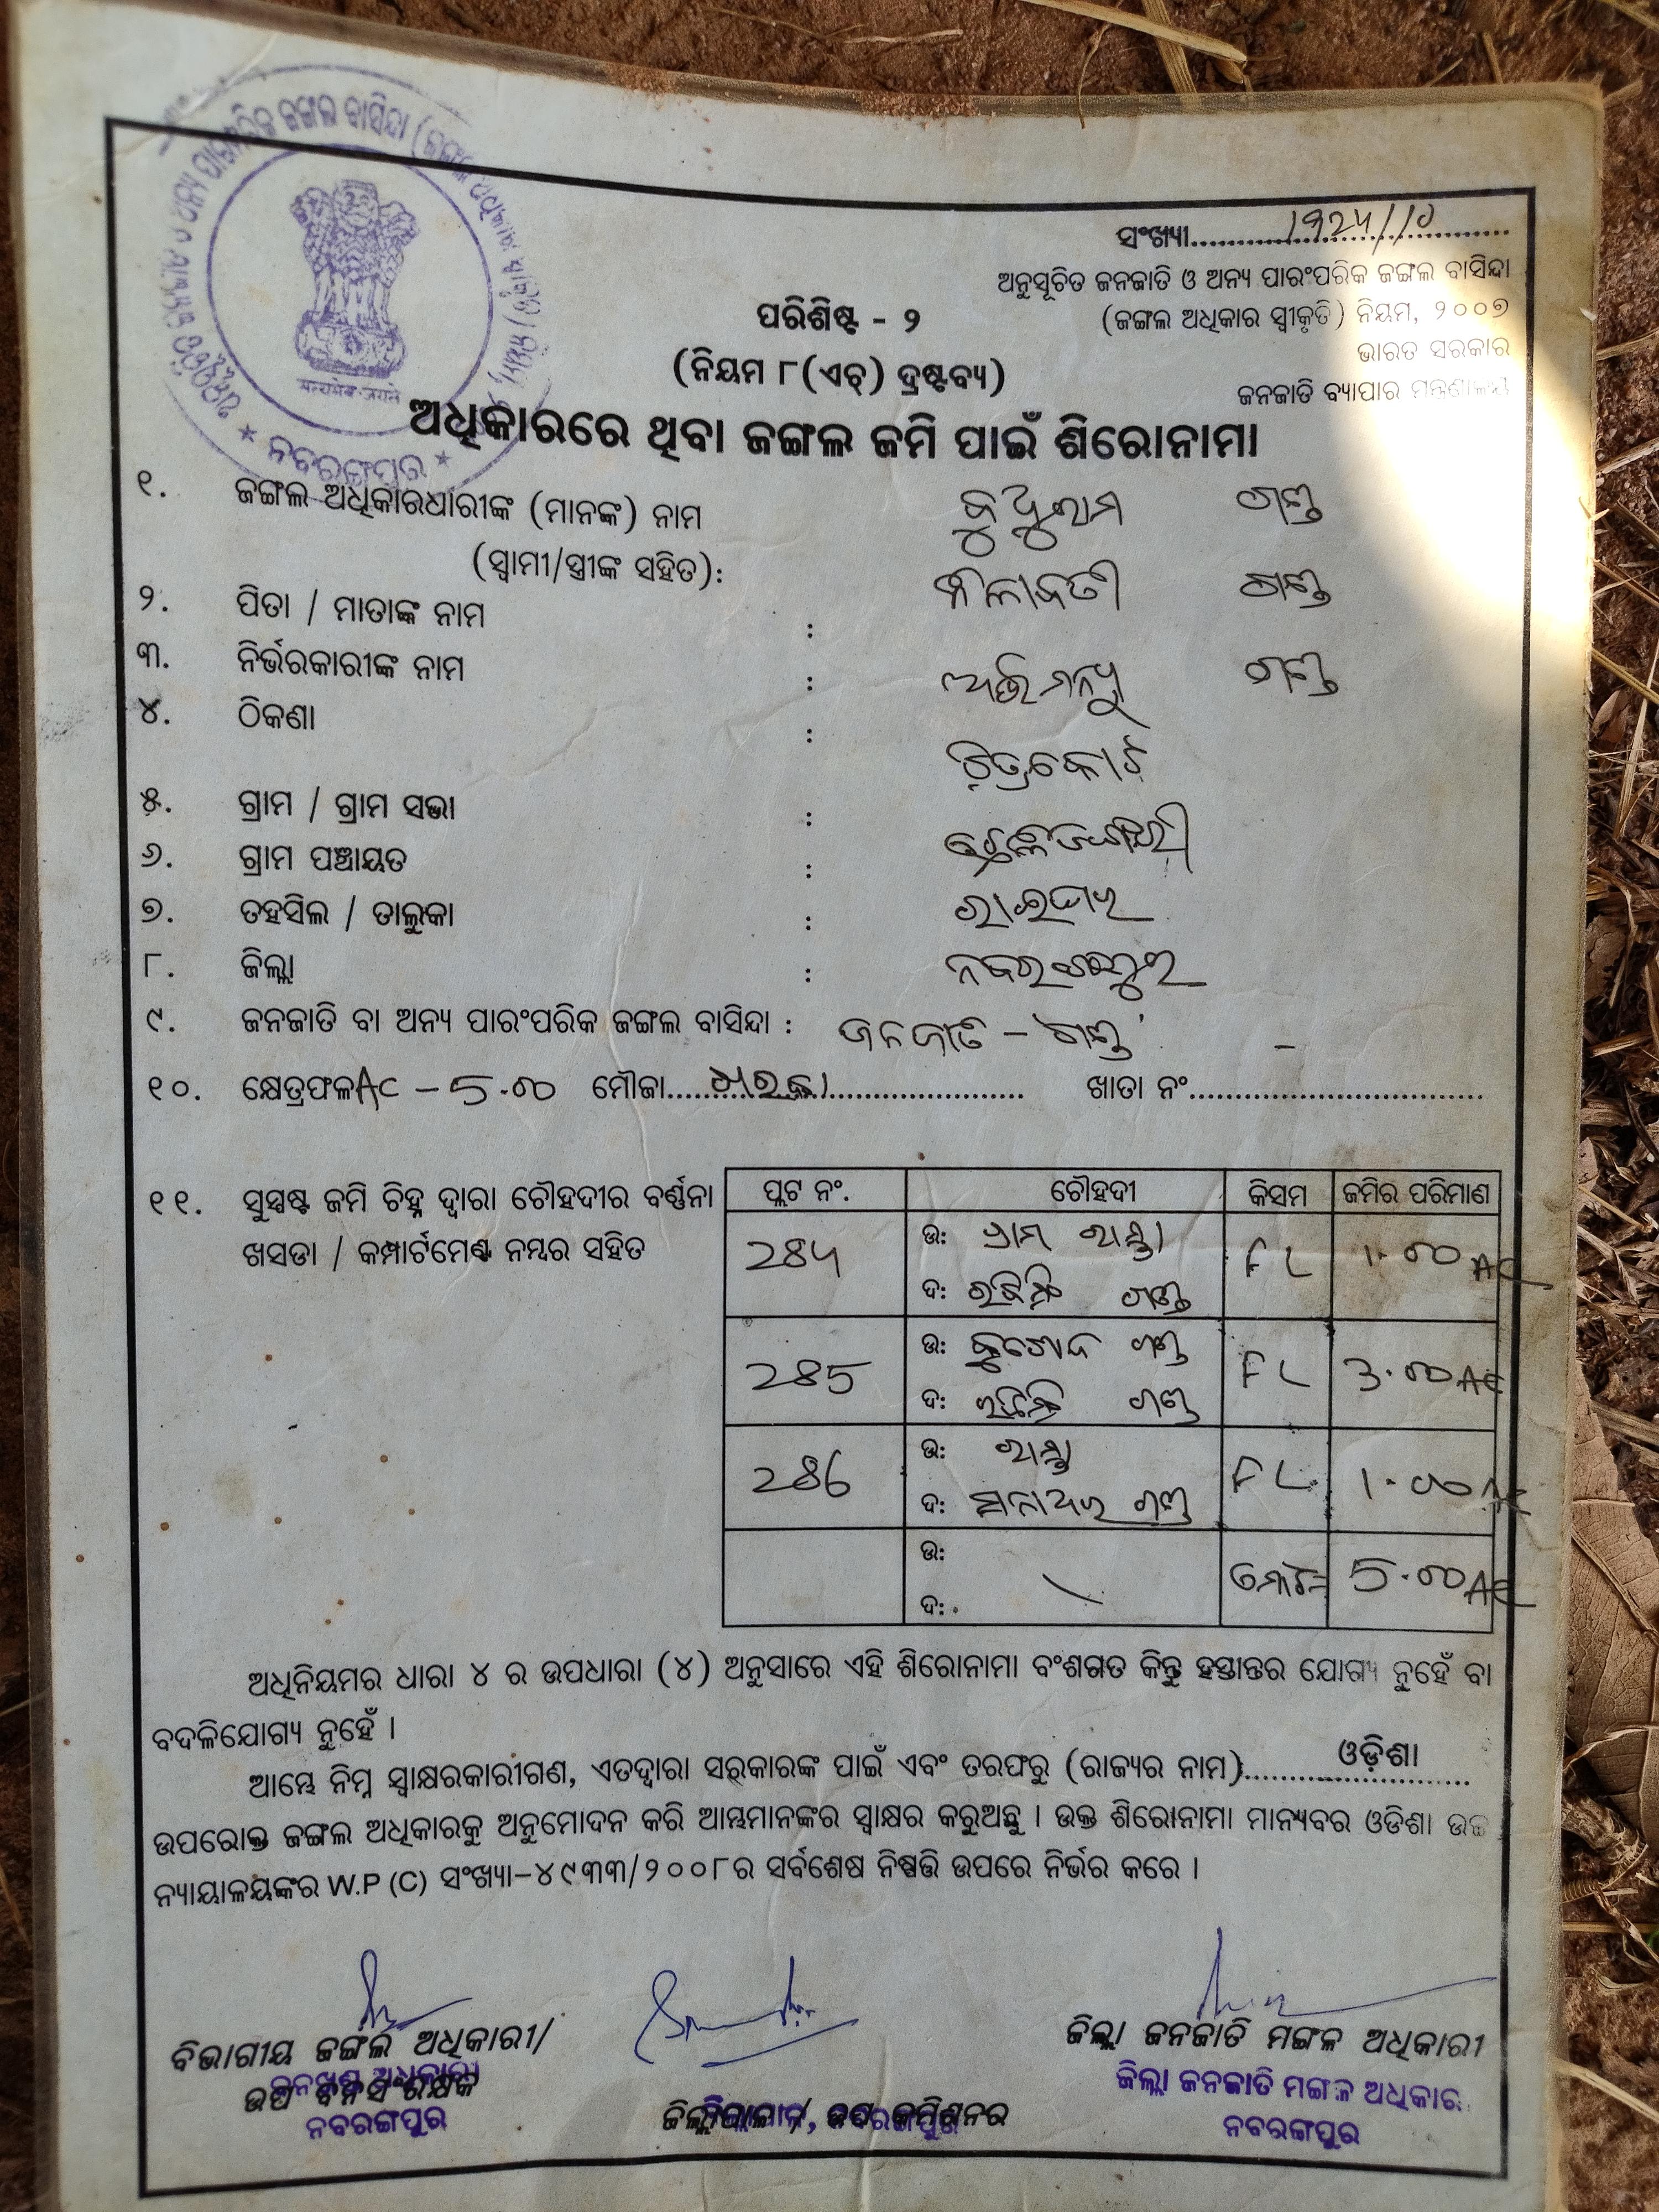 ସଂଖ୍ୟା
ଅନୁସୂଚିତ ଜନଜାତି ଓ ଅନ୍ୟ ପାରଂପରିକ ଜଙ୍ଗଲ ବାସିନ୍ଦା
(ଜଙ୍ଗଲ ଅଧିକାର ସ୍ୱୀକୃତି) ନିୟମ, ୨୦୦୭
ଭାରତ ସରକାର
ଜନଜାତି ବ୍ୟାପାର ମନ୍ତ୍ରଣାଳୟ
ପରିଶିଷ୍ଟ - ୨
(ନିୟମ ୮(ଏଚ୍) ଦ୍ରଷ୍ଟବ୍ୟ)
ନବରଙ୍ଗପୁର
ଅଧିକାରରେ ଥିବା ଜଙ୍ଗଲ ଜମି ପାଇଁ ଶିରୋନାମା
୧. ଜଙ୍ଗଲ ଅଧିକାରଧାରୀଙ୍କ (ମାନଙ୍କ) ନାମ ଗଣ୍ଡ
(ସ୍ୱାମୀ/ସ୍ତ୍ରୀଙ୍କ ସହିତ):
୨. ପିତା / ମାତାଙ୍କ ନାମ : ଗଣ୍ଡ
୩. ନିର୍ଭରକାରୀଙ୍କ ନାମ : ଅଭିମନ୍ୟୁ ଗଣ୍ଡ
୪. ଠିକଣା : ଚିତ୍ରକୋଟ
୫. ଗ୍ରାମ / ଗ୍ରାମ ସଭା :
୬. ଗ୍ରାମ ପଞ୍ଚାୟତ :
୭. ତହସିଲ / ତାଲୁକା : ରାଇଘର
୮. ଜିଲ୍ଲା : ନବରଙ୍ଗପୁର
୯. ଜନଜାତି ବା ଅନ୍ୟ ପାରଂପରିକ ଜଙ୍ଗଲ ବାସିନ୍ଦା : ଜନଜାତି - ଗଣ୍ଡ
୧୦. କ୍ଷେତ୍ରଫଳ AC - 5.00 ମୌଜା ଖାତା ନଂ
୧୧. ସୁସ୍ପଷ୍ଟ ଜମି ଚିହ୍ନ ଦ୍ୱାରା ଚୌହଦୀର ବର୍ଣ୍ଣନା
ଖସଡା / କମ୍ପାର୍ଟମେଣ୍ଟ ନମ୍ବର ସହିତ
ପ୍ଲଟ ନଂ. ଚୌହଦୀ କିସମ ଜମିର ପରିମାଣ
284 ଉ: ଗ୍ରାମ ରାସ୍ତା FL 1.00 AC
ଦ: ଗଣ୍ଡ
285 ଉ: ଗଣ୍ଡ FL 3.00 AC
ଦ: ଗଣ୍ଡ
286 ଉ: ରାସ୍ତା FL 1.00 AC
ଦ: ଗଣ୍ଡ
ଉ: 5.00 AC
ଦ:
ଅଧିନିୟମର ଧାରା ୪ ର ଉପଧାରା (୪) ଅନୁସାରେ ଏହି ଶିରୋନାମା ବଂଶଗତ କିନ୍ତୁ ହସ୍ତାନ୍ତର ଯୋଗ୍ୟ ନୁହେଁ ବା
ବଦଳିଯୋଗ୍ୟ ନୁହେଁ ।
ଆମ୍ଭେ ନିମ୍ନ ସ୍ୱାକ୍ଷରକାରୀଗଣ, ଏତଦ୍ୱାରା ସରକାରଙ୍କ ପାଇଁ ଏବଂ ତରଫରୁ (ରାଜ୍ୟର ନାମ) ଓଡ଼ିଶା
ଉପରୋକ୍ତ ଜଙ୍ଗଲ ଅଧିକାରକୁ ଅନୁମୋଦନ କରି ଆମ୍ଭମାନଙ୍କର ସ୍ୱାକ୍ଷର କରୁଅଛୁ । ଉକ୍ତ ଶିରୋନାମା ମାନ୍ୟବର ଓଡିଶା ଉଚ୍ଚ
ନ୍ୟାୟାଳୟଙ୍କର W.P (C) ସଂଖ୍ୟା-୪୯୩୩/୨୦୦୮ର ସର୍ବଶେଷ ନିଷ୍ପତ୍ତି ଉପରେ ନିର୍ଭର କରେ ।
ବିଭାଗୀୟ ଜଙ୍ଗଲ ଅଧିକାରୀ/
ଉପ ବନସଂରକ୍ଷକ
ନବରଙ୍ଗପୁର
ଜିଲ୍ଲାପାଳ / ଉପ କମିଶନର
ଜିଲ୍ଲା ଜନଜାତି ମଙ୍ଗଳ ଅଧିକାରୀ
ଜିଲ୍ଲା ଜନଜାତି ମଙ୍ଗଳ ଅଧିକାରୀ
ନବରଙ୍ଗପୁର